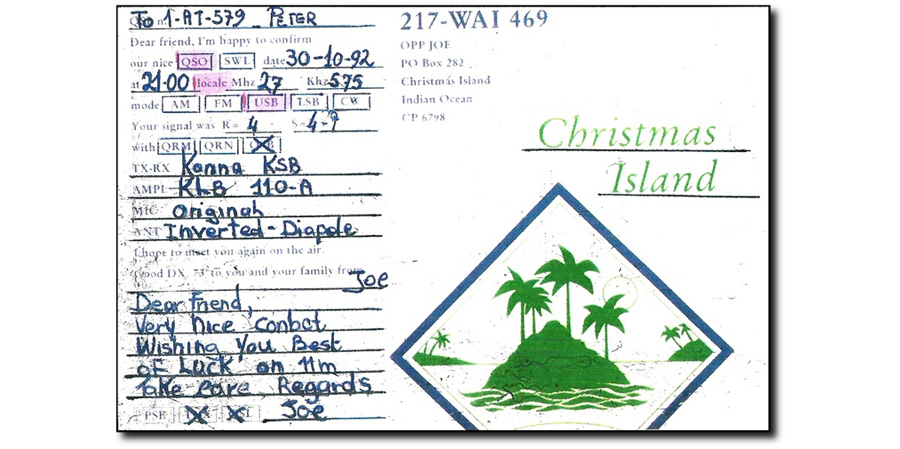 To 1-AT-579_ PETER
Dear friend, I'm happy to confirm
our nice QSO SWL date 30-10-92
at 21.00 locale Mhz 27 Khz 575
mode AM FM USB LSB CW
Your signal was R= 4 S= 4-9
with QRM QRN
TX-RX Kanna KSB
AMPL KLB 110-A
MIC Originah
ANT Inverted-Diapole
I hope to meet you again on the air.
Good DX, 73 to you and your family from
Joe
Dear Friend,
Very Nice Contact
Wishing You Best
of Luck on 11m
Take care Regards
PSE Joe
217-WAI 469
OPP JOE
PO Box 282
Christmas Island
Indian Ocean
CP 6798
Christmas
Island